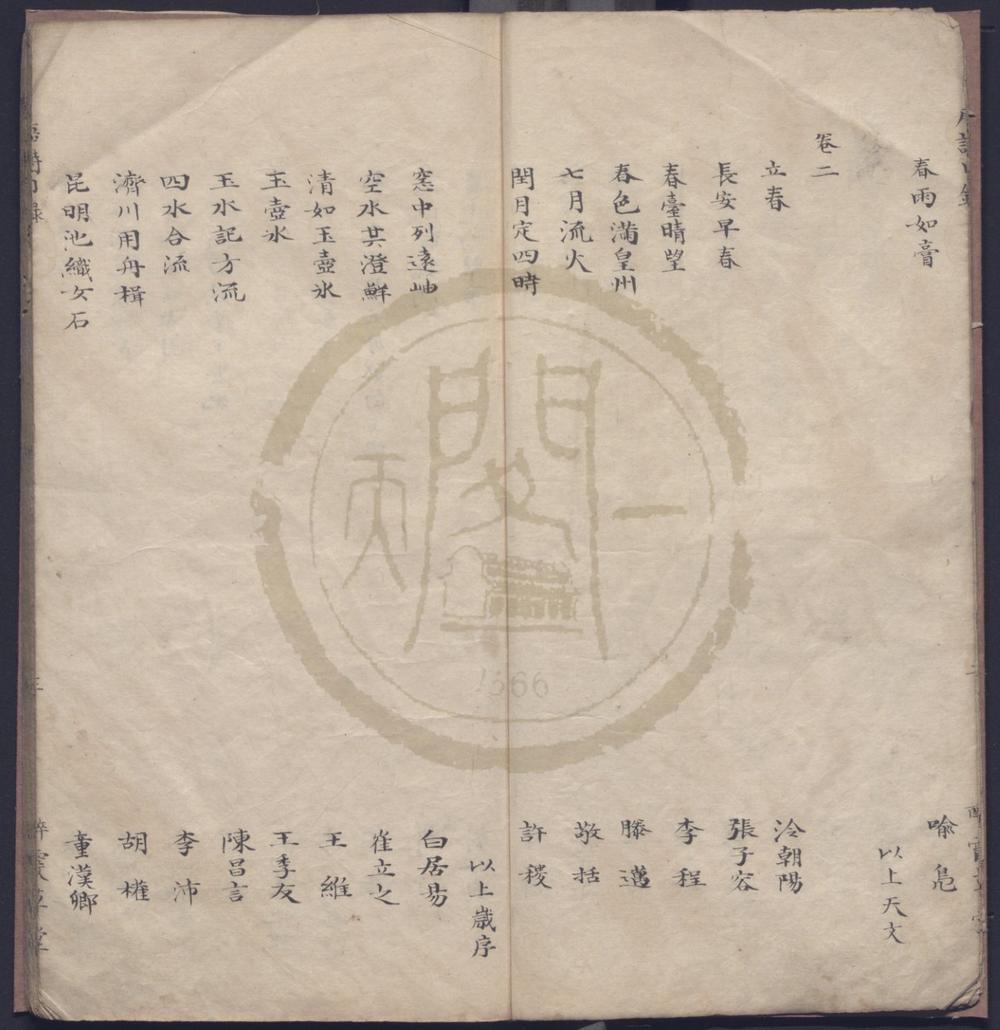 春雨如膏 喩鳧
以上天文
卷二
立春 泠朝陽
長安早春 張子容
春臺晴望 李程
春色滿皇州 滕邁
七月流火 敬括
閏月定四時 許稷
以上歲序
窓中列遠岫 白居易
空水共澄鮮 崔立之
清如玉壺氷 王維
玉壺氷 王季友
玉水記方流 陳昌言
四水合流 李沛
濟川用舟楫 胡權
昆明池織女石 童漢卿
天一閣
1566